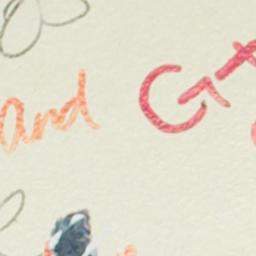 and Gt